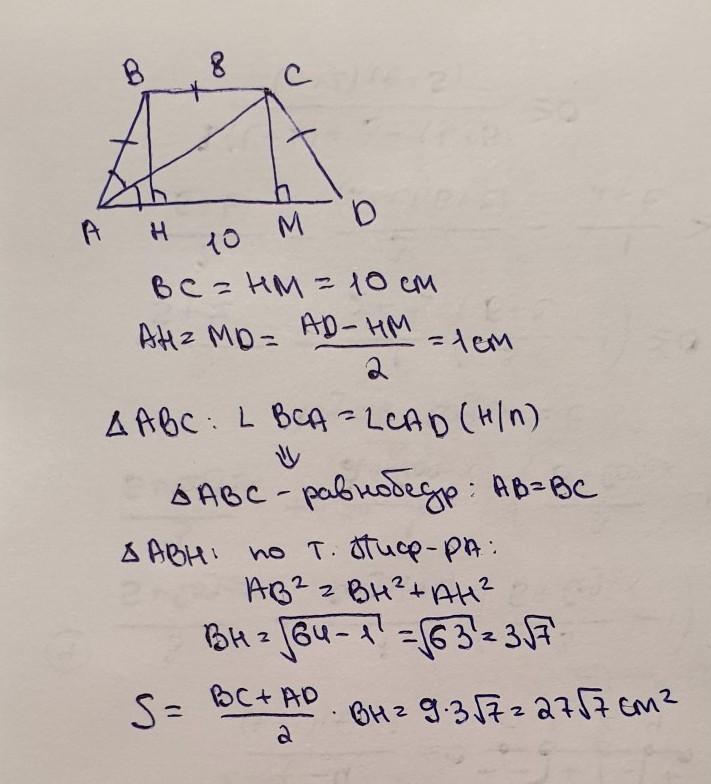 B 8 C
A H 10 M D
BC = HM = 10 см
AH = MD = (AD - HM)/2 = 1 см
△ABC: ∠ BCA = ∠CAD (н/л)
⇓
△ABC - равнобедр: AB = BC
△ABH: по т. Пиф-ра:
AB² = BH² + AH²
BH = √(64 - 1) = √63 = 3√7
S = (BC + AD)/2 · BH = 9·3√7 = 27√7 см²